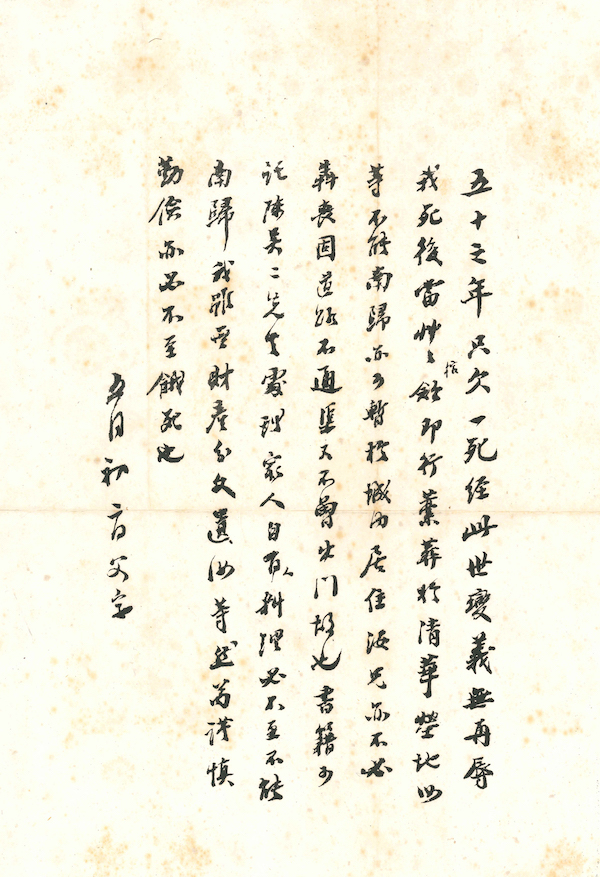 五十之年只欠一死經此世變義無再辱
我死後當艸々棺斂即行藁葬於清華塋地汝
等不能南歸亦可暫於城內居住汝兄亦不必
犇喪因道路不通渠又不曾出門故也書籍可
託陳吳二先生處理家人自有人料理必不至不能
南歸我雖無財產分文遺汝等然苟謹慎
勤儉亦必不至餓死也
五月初二日父字